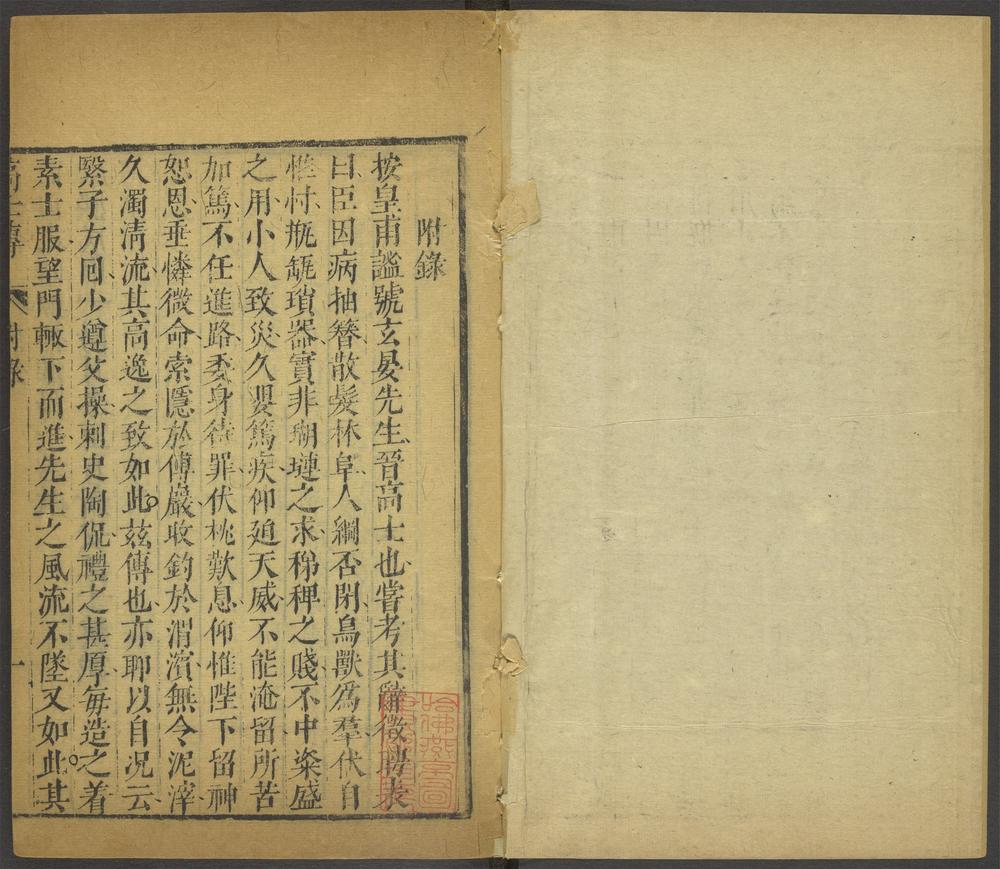 附錄
按皇甫謐號玄晏先生晉高士也嘗考其辭徵聘表
曰臣因病抽簪散髮林阜人綱否閉鳥獸爲羣伏自
惟忖瓶缻瑣器實非瑚璉之求稊稗之賤不中粢盛
之用小人致災久嬰篤疾仰迫天威不能淹留所苦
加篤不任進路委身待罪伏枕歎息仰惟陛下留神
恕恩垂憐微命索隱於傅巖收釣於渭濱無令泥滓
久濁清流其高逸之致如此兹傳也亦聊以自况云
緊子方回少遵父操刺史陶侃禮之甚厚每造之着
素士服望門輒下而進先生之風流不墜又如此其
高士傳 附錄 一
哈佛燕京圖